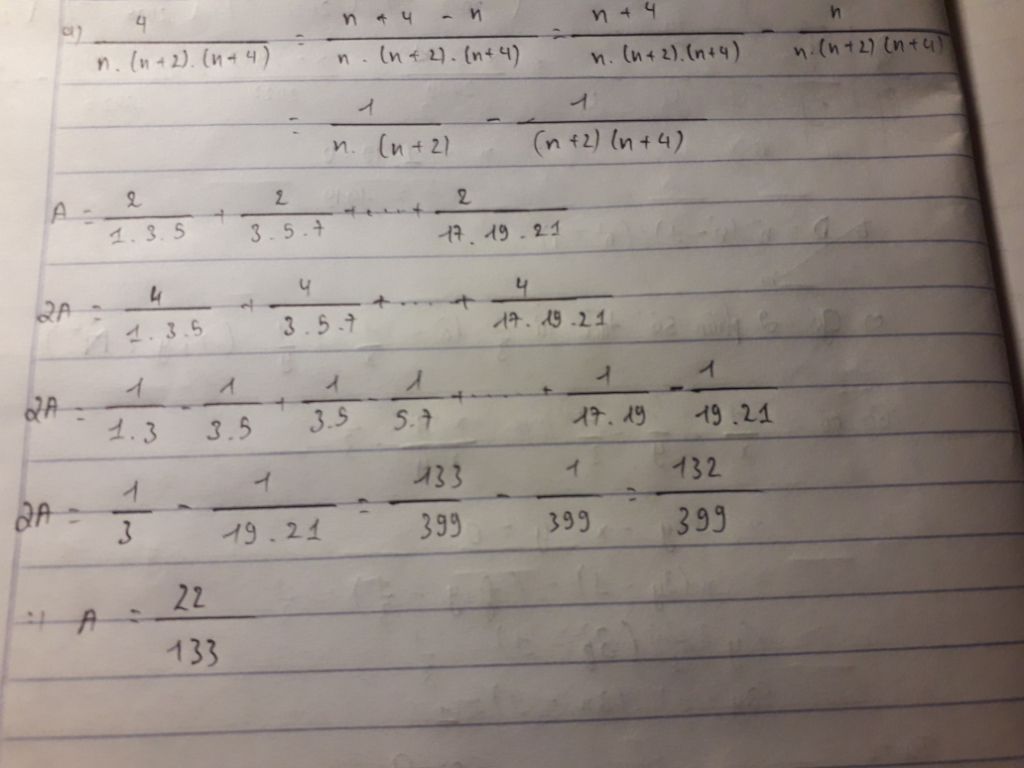 a) 4/(n.(n+2).(n+4)) = (n+4-n)/(n.(n+2).(n+4)) = (n+4)/(n.(n+2).(n+4)) - n/(n.(n+2)(n+4))
= 1/(n.(n+2)) - 1/((n+2)(n+4))
A = 2/(1.3.5) + 2/(3.5.7) + .... + 2/(17.19.21)
2A = 4/(1.3.5) + 4/(3.5.7) + .... + 4/(17.19.21)
2A = 1/(1.3) - 1/(3.5) + 1/(3.5) - 1/(5.7) + .... + 1/(17.19) - 1/(19.21)
2A = 1/3 - 1/(19.21) = 133/399 - 1/399 = 132/399
=> A = 22/133